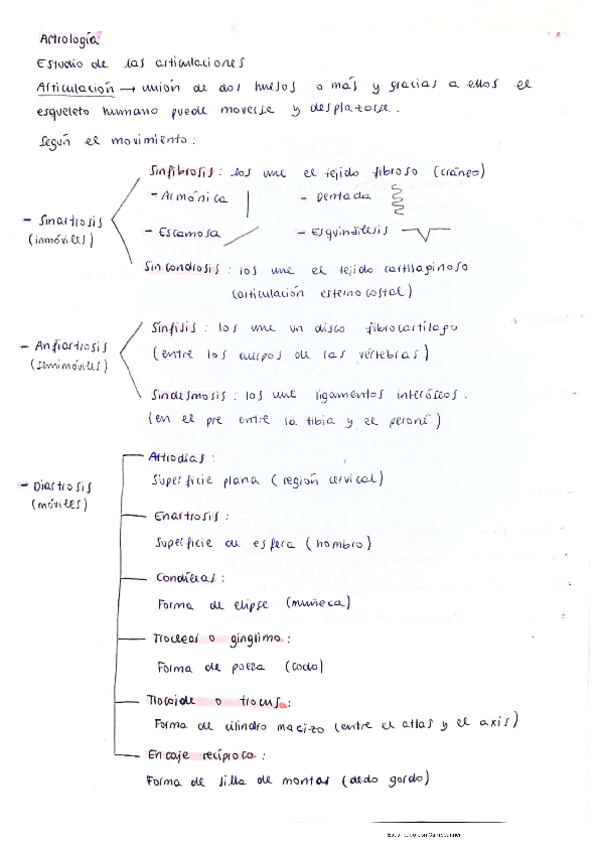 Artrología
Estudio de las articulaciones
Articulación → unión de dos huesos o más y gracias a ellos el
esqueleto humano puede moverse y desplazarse.
Según el movimiento:
Sinfibrosis: los une el tejido fibroso (cráneo)
- Armónica
- Dentada
- Sinartrosis
(inmóviles)
- Escamosa
- Esquindilesis
Sincondrosis: los une el tejido cartilaginoso
(articulación esternocostal)
Sínfisis: los une un disco fibrocartílago
- Anfiartrosis
(semimóviles)
(entre los cuerpos de las vértebras)
Sindesmosis: los une ligamentos interóseos.
(en el pie entre la tibia y el peroné)
Artrodias:
- Diartrosis
(móviles)
Superficie plana (región cervical)
Enartrosis:
Superficie de esfera (hombro)
Condíleas:
Forma de elipse (muñeca)
Troclear o gínglimo:
Forma de polea (codo)
Trocoide o trocus:
Forma de cilindro macizo (entre el atlas y el axis)
Encaje recíproco:
Forma de silla de montar (dedo gordo)